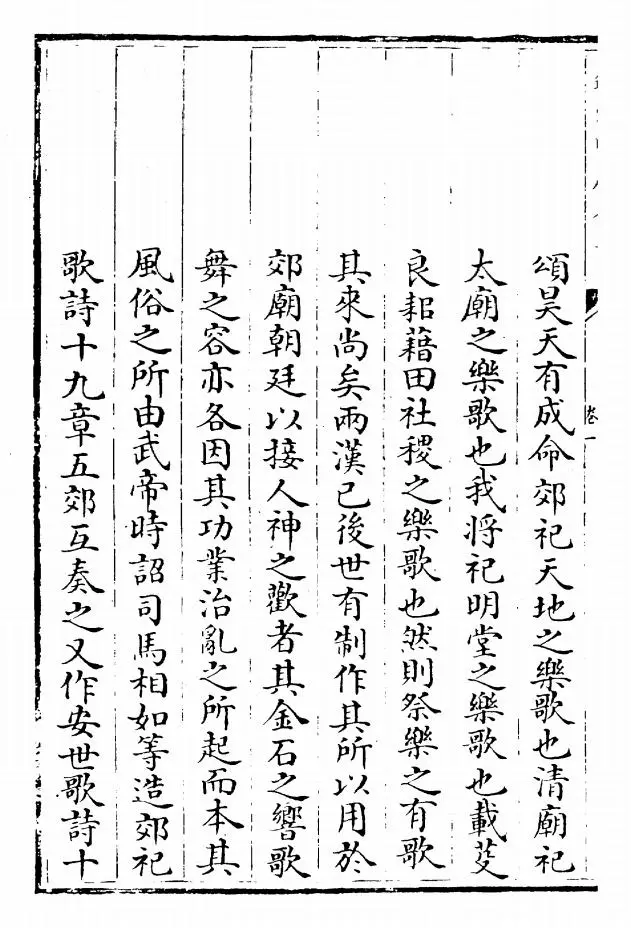 卷一
頌昊天有成命郊祀天地之樂歌也清廟祀
太廟之樂歌也我將祀明堂之樂歌也載芟
良耜藉田社稷之樂歌也然則祭樂之有歌
其來尚矣兩漢已後世有制作其所以用於
郊廟朝廷以接人神之歡者其金石之響歌
舞之容亦各因其功業治亂之所起而本其
風俗之所由武帝時詔司馬相如等造郊祀
歌詩十九章五郊互奏之又作安世歌詩十